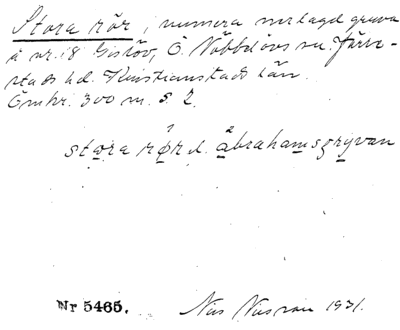 Stora rör, numera nerlagd gruva
å nr. 18 Gislöv, Ö. Nöbbelövs sn. Järre-
stads hd. Kristianstads län.
Omkr. 300 m. s. 2.
stora rør l. abrahamsgryvan
Nr 5465. Nils 1931.